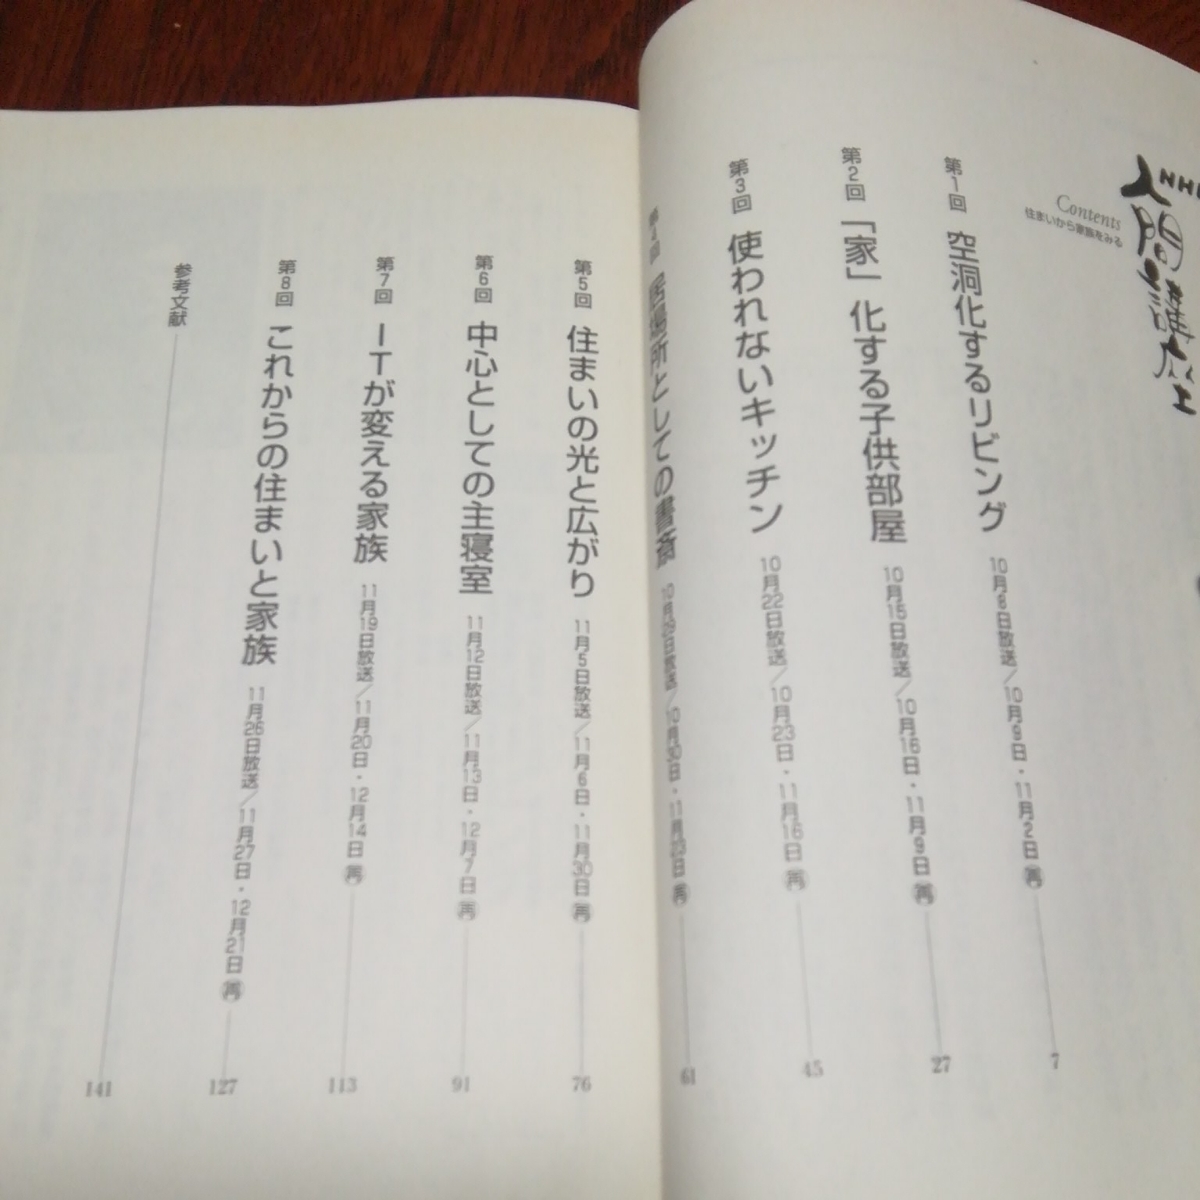 NHK
人間講座
Contents
住まいから家族をみる
第1回 空洞化するリビング 10月8日放送/10月9日・11月2日再 7
第2回 「家」化する子供部屋 10月15日放送/10月16日・11月9日再 27
第3回 使われないキッチン 10月22日放送/10月23日・11月16日再 45
第4回 居場所としての書斎 10月29日放送/10月30日・11月23日再 61
第5回 住まいの光と広がり 11月5日放送/11月6日・11月30日再 76
第6回 中心としての主寝室 11月12日放送/11月13日・12月7日再 91
第7回 ITが変える家族 11月19日放送/11月20日・12月14日再 113
第8回 これからの住まいと家族 11月26日放送/11月27日・12月21日再 127
参考文献 141